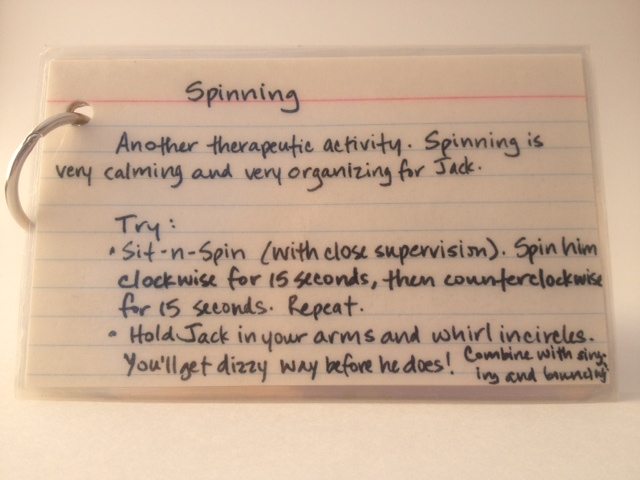 Spinning
Another therapeutic activity. Spinning is
very calming and very organizing for Jack.
Try:
• Sit-n-Spin (with close supervision). Spin him
clockwise for 15 seconds, then counterclockwise
for 15 seconds. Repeat.
• Hold Jack in your arms and whirl in circles.
You'll get dizzy way before he does! Combine with sing-
ing and bouncing